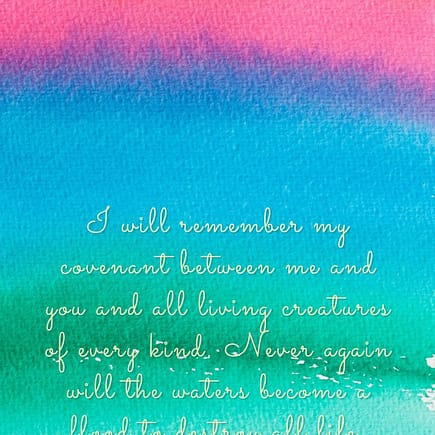 I will remember my
covenant between me and
you and all living creatures
of every kind. Never again
will the waters become a
flood to destroy all life.